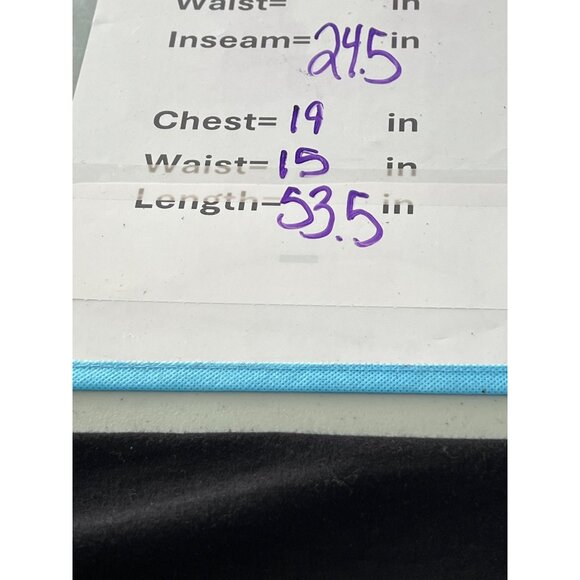 Waist= in
Inseam=24.5 in
Chest= 19 in
Waist= 15 in
Length=53.5 in